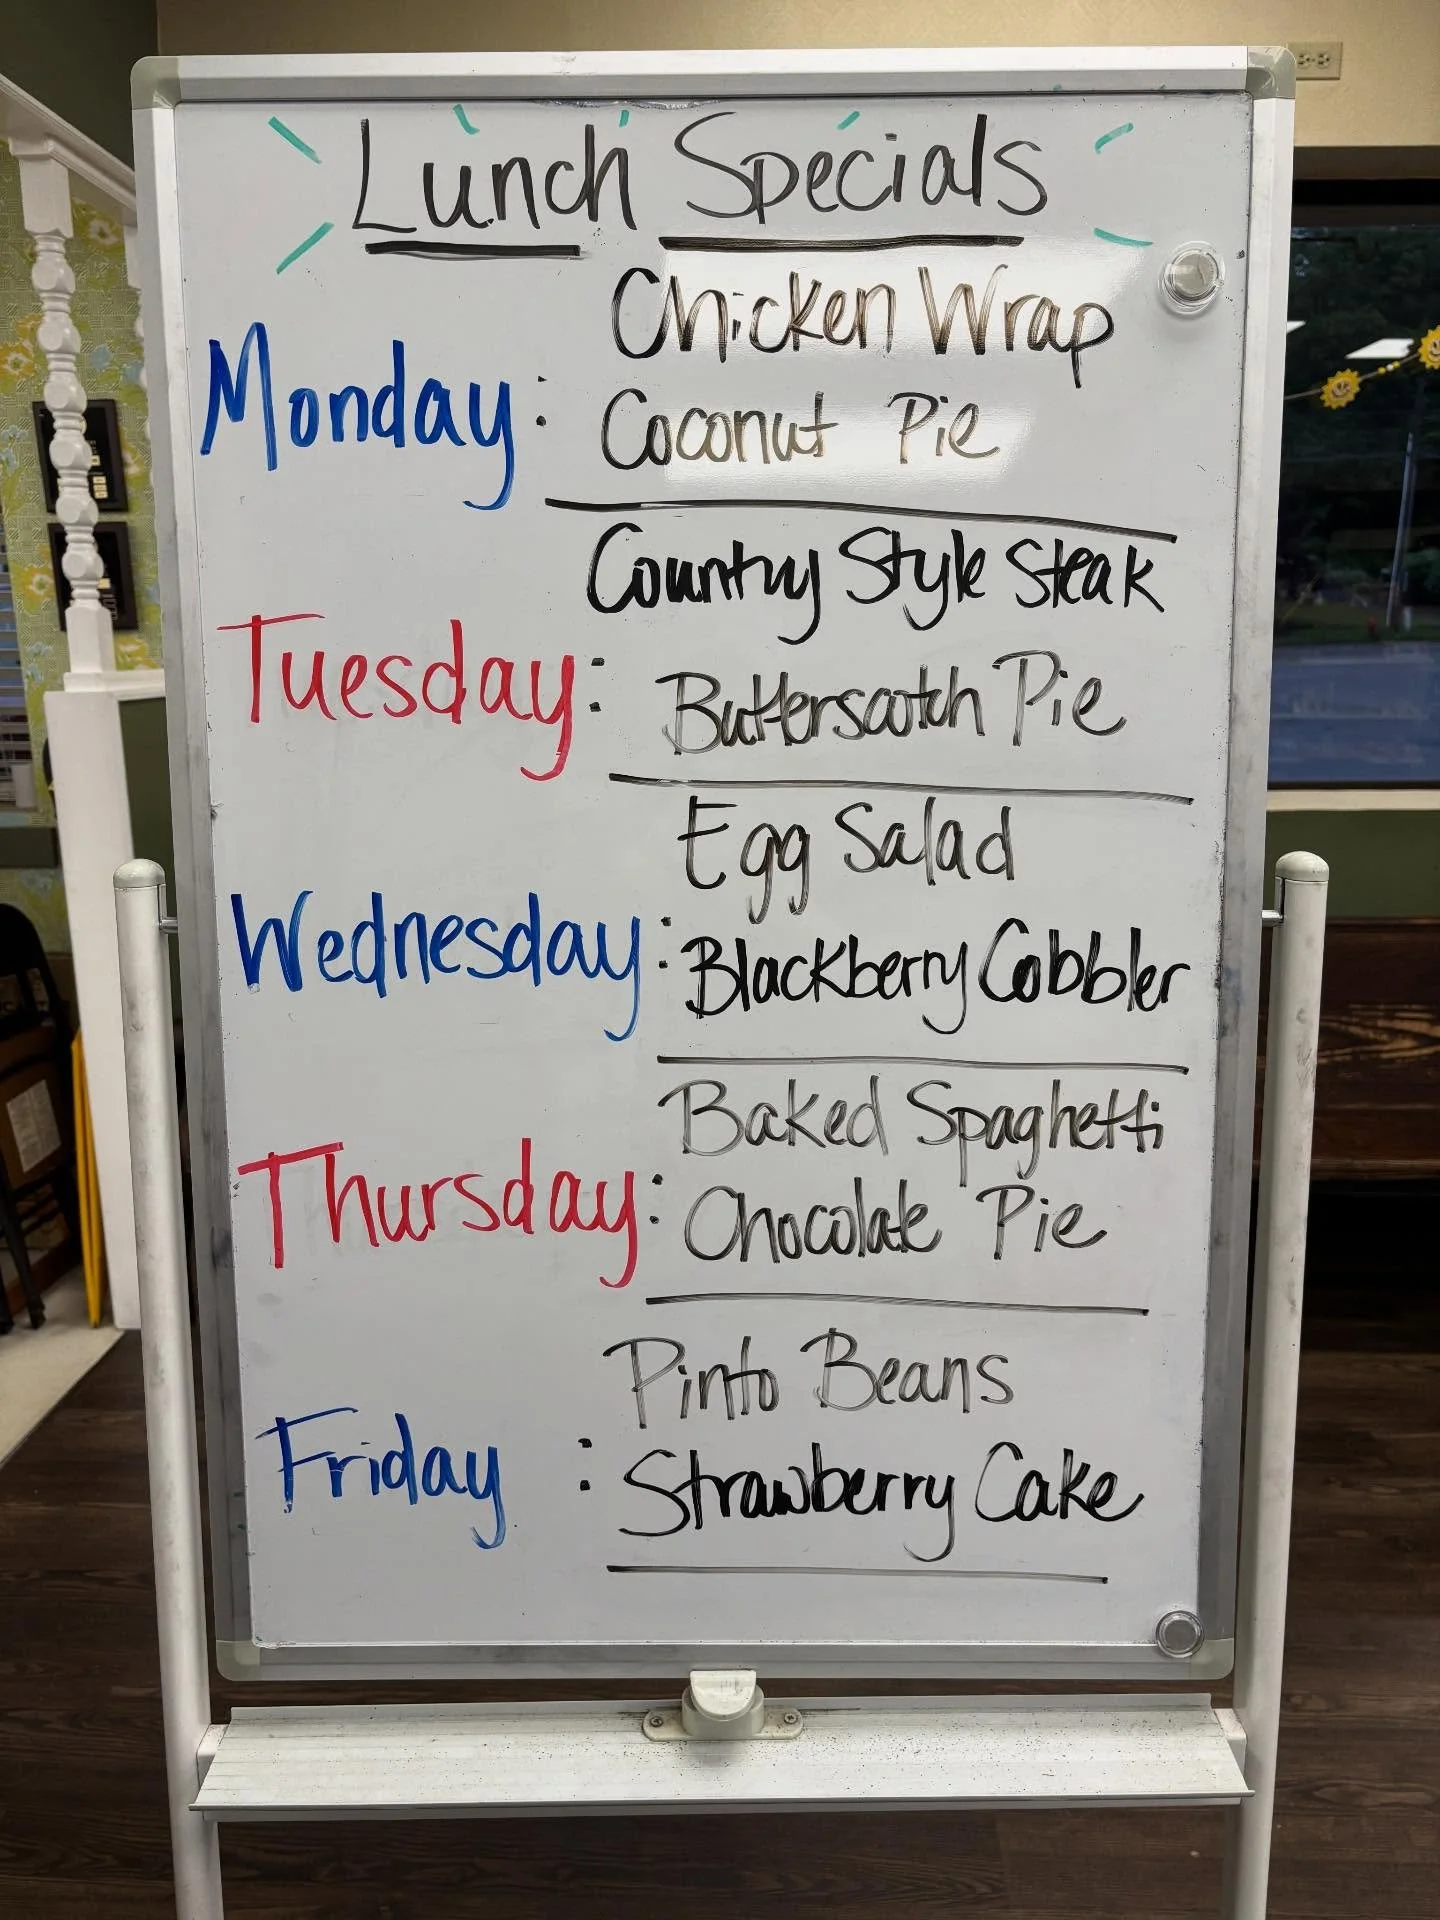 Lunch Specials
Monday: Chicken Wrap
Coconut Pie
Tuesday: Country Style Steak
Butterscotch Pie
Wednesday: Egg Salad
Blackberry Cobbler
Thursday: Baked Spaghetti
Chocolate Pie
Friday : Pinto Beans
Strawberry Cake